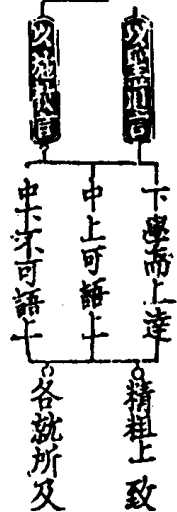 以聖道言
以施敎言
下學而上達
中上可語上
中下不可語上
精粗上致
各就所及